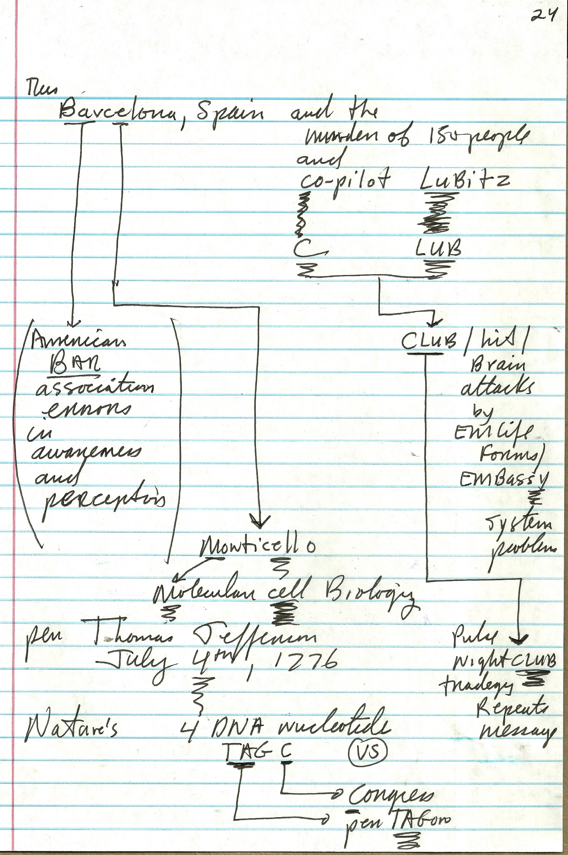 24
Thus
Barcelona, Spain and the
murder of 150 people
and
co-pilot LuBitz
C LUB
American
BAR
association
errors
in
awareness
and
perception
CLUB / hit /
Brain
attacks
by
EM Life
Forms/
EMBassy
system
problem
Monticello
Molecular cell Biology
pen Thomas Jefferson
July 4th, 1776
Pulse
Night CLUB
tradegy
Repeats
message
Nature's 4 DNA nucleotide
TAG C VS
Congress
pen TAGore